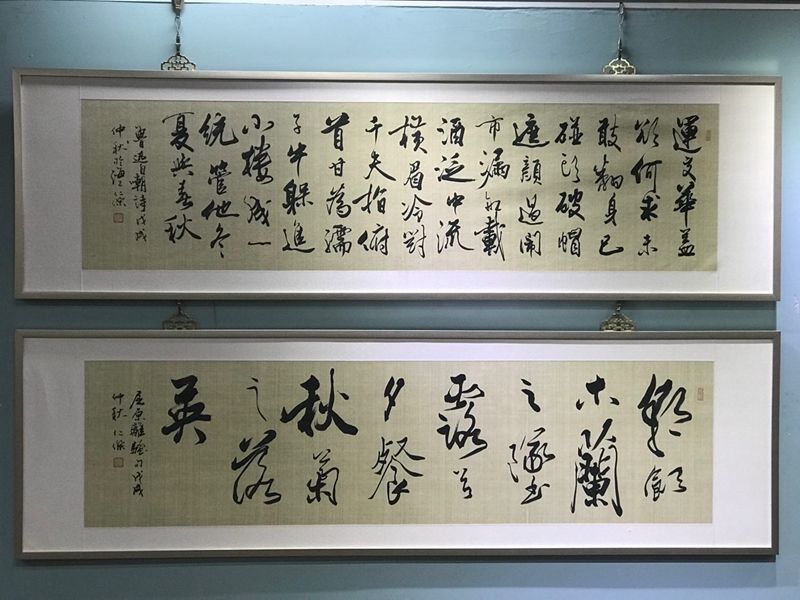 運交華蓋
欲何求未
敢翻身已
碰头破帽
遮顏過鬧
市漏船載
酒泛中流
橫眉冷對
千夫指俯
首甘為孺
子牛躲進
小樓成一
統管他冬
夏與春秋
魯迅自嘲詩戊戌
仲秋於
朝飲
木蘭
之墜
露兮
夕餐
秋菊
之落
英
屈原離騷句戊戌
仲秋仁